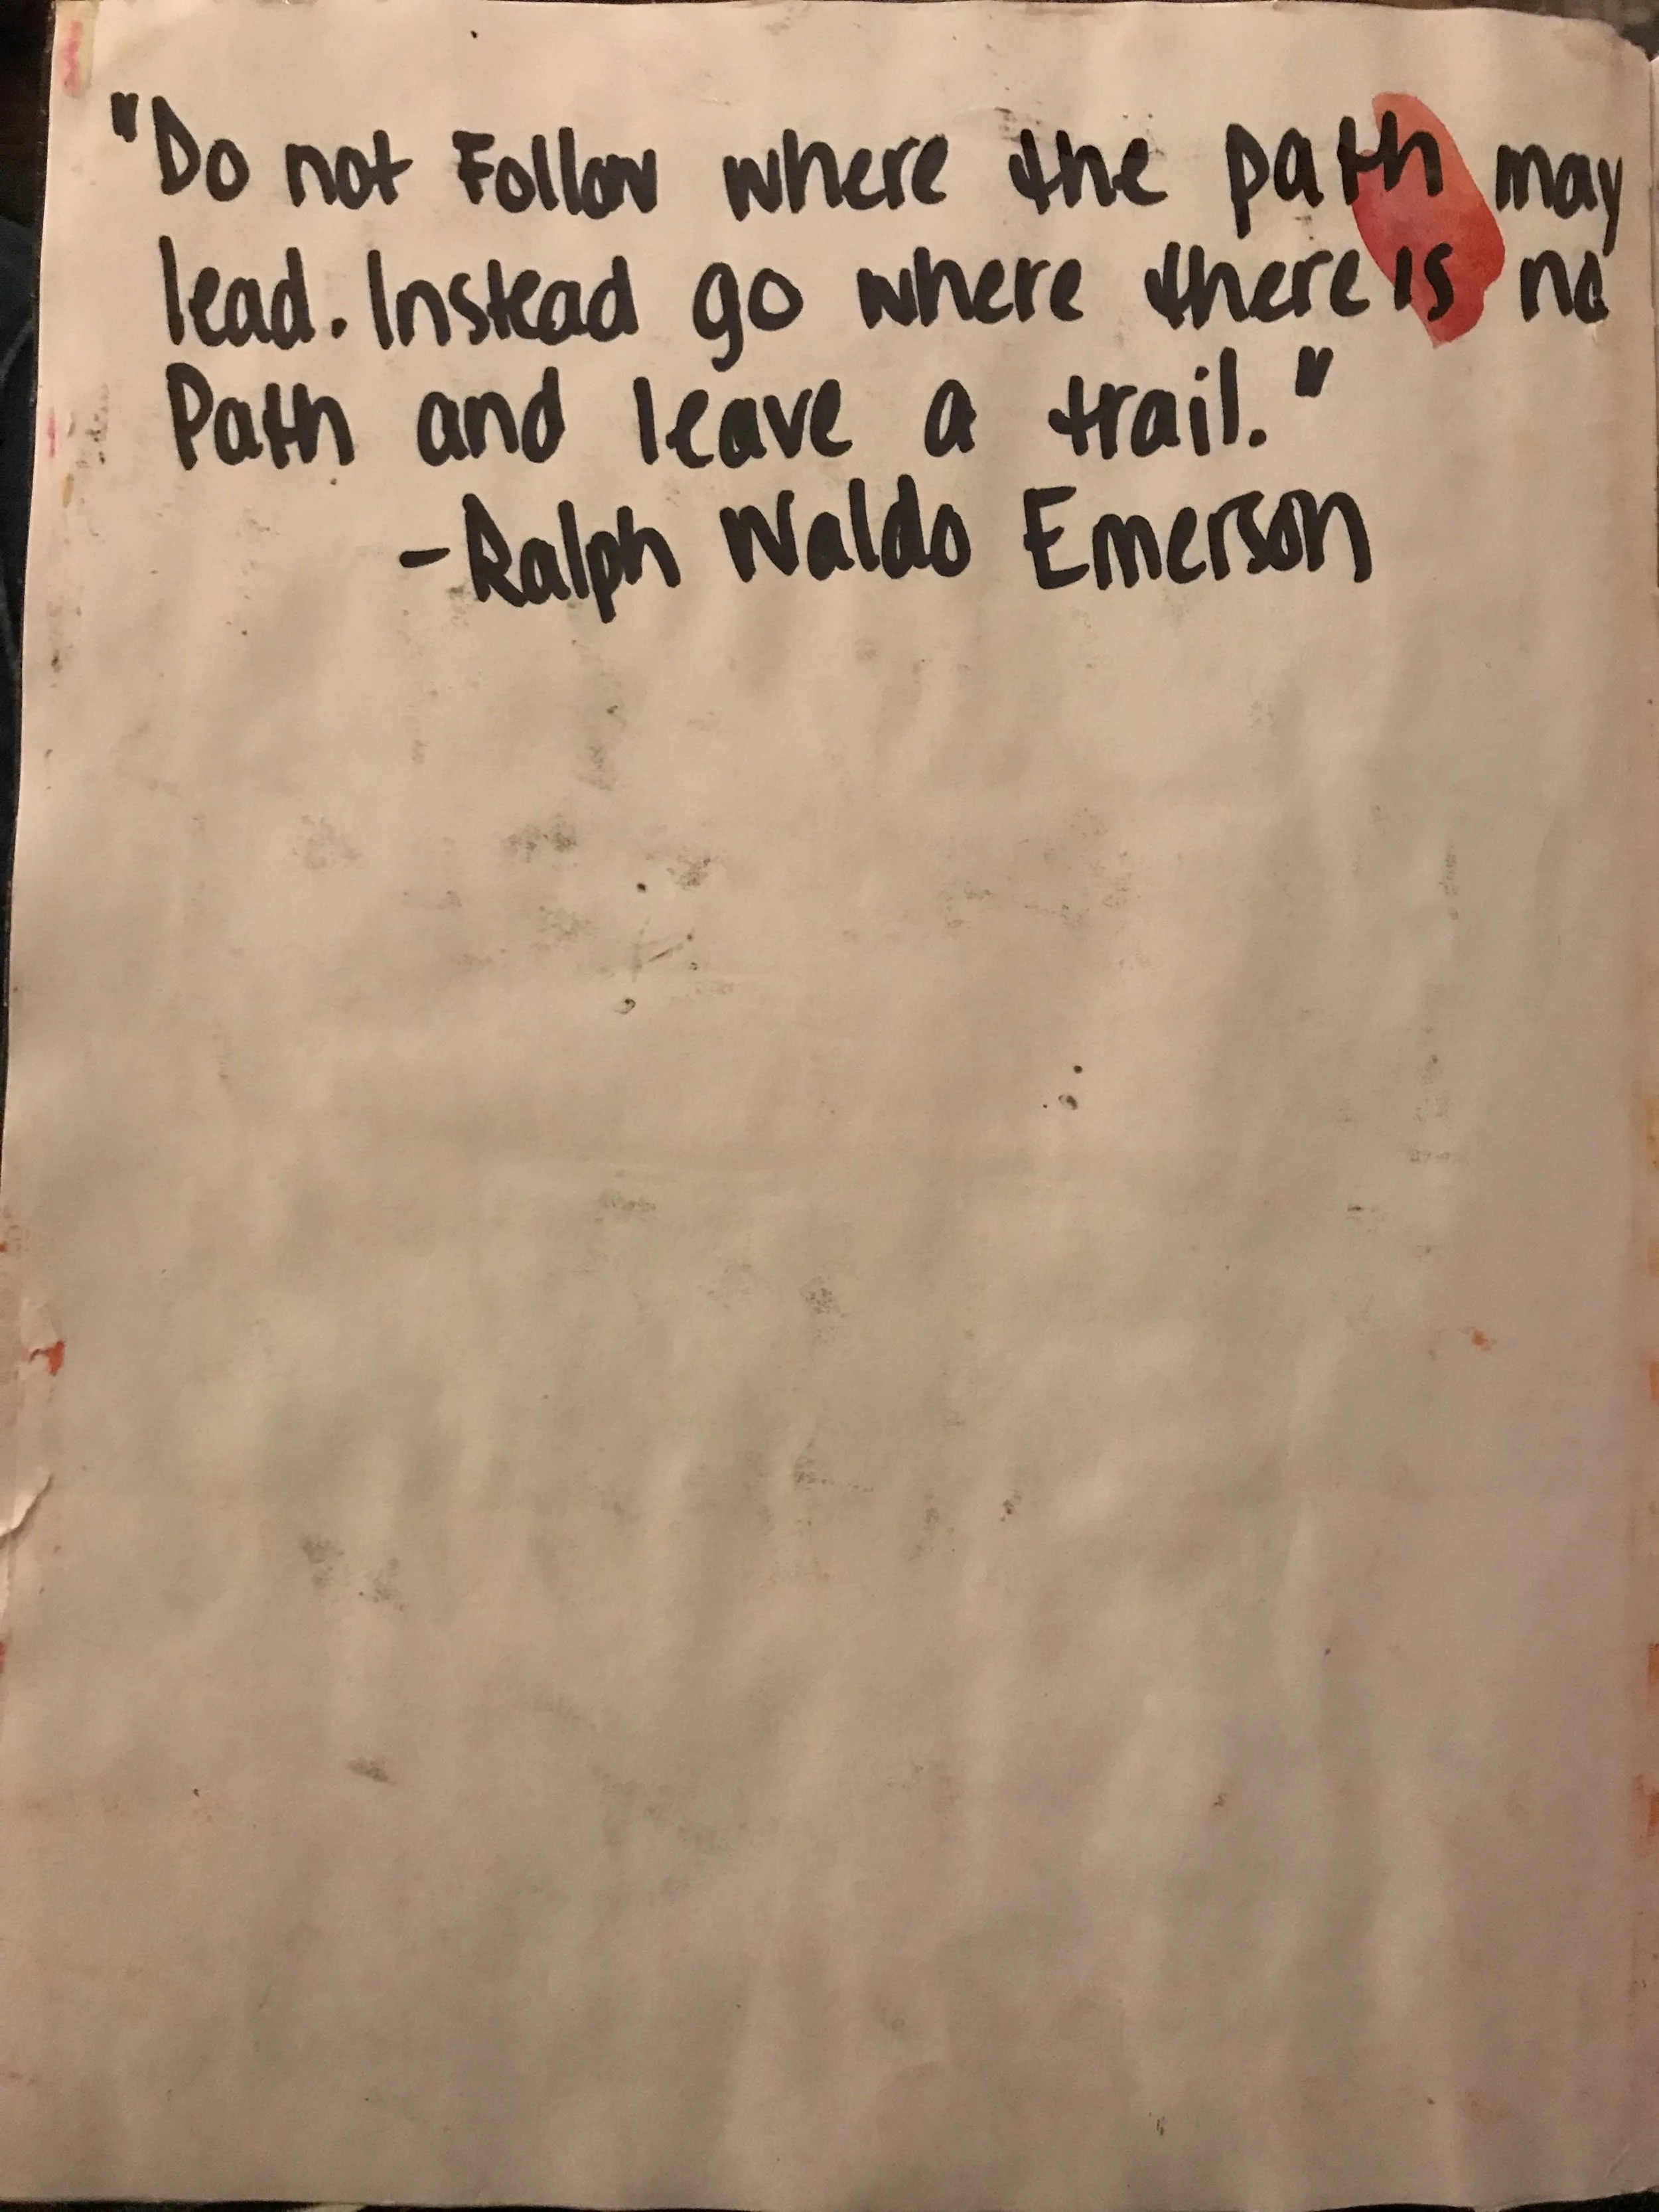 "Do not Follow where the path may
lead. Instead go where there is no
Path and leave a trail."
-Ralph Waldo Emerson